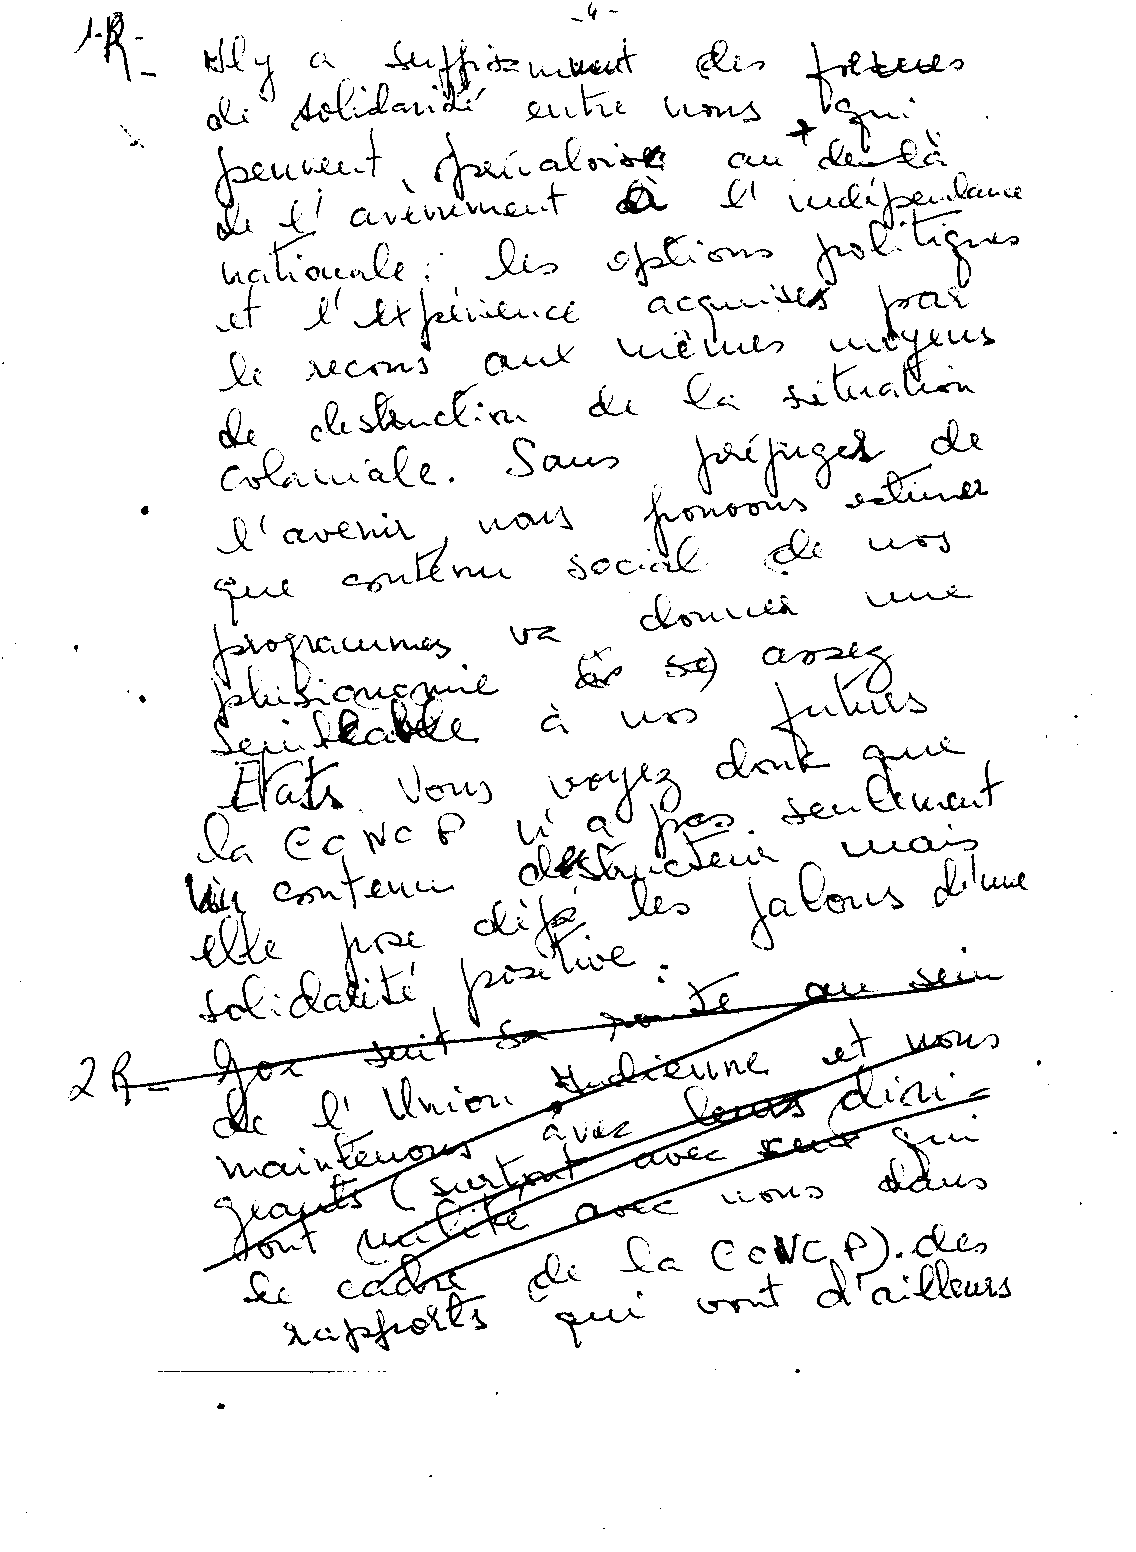 - 4 -
1-R- Il y a suffisamment des formes
de solidarité entre nous qui
peuvent prévaloir au delà
de l'avènement à l'indépendance
nationale: les options politiques
et l'expérience acquises par
le recours aux mêmes moyens
de destruction de la situation
coloniale. Sans préjuger de
l'avenir, nous pouvons estimer
que contenu social de nos
programmes va donner une
phisionomie assez
semblable à nos futurs
Etats. Vous voyez donc que
la CONCP n'a pas seulement
un contenu destructeur mais
elle pose déjà les jalons d'une
solidarité positive.
2R- Goa suit sa route au sein
de l'Union Indienne et nous
maintenons avec leurs diri-
geants (surtout avec ceux qui
ont milité avec nous dans
le cadre de la CONCP). des
rapports qui vont d'ailleurs